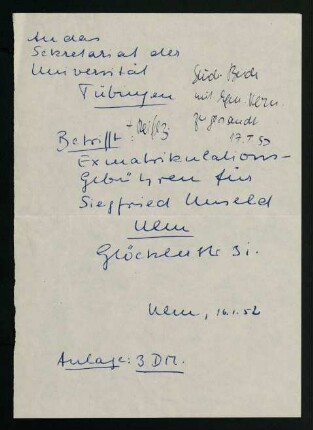 An das
Sekretariat der
Universität
Tübingen
Stud. Buch
mit
zugesandt
17.1.52
Betrifft:
Exmatrikulations-
Gebühren für
Siegfried Unseld
Ulm
Glöcklerstr 3i.
Ulm, 16.1.52
Anlage: 3 DM.